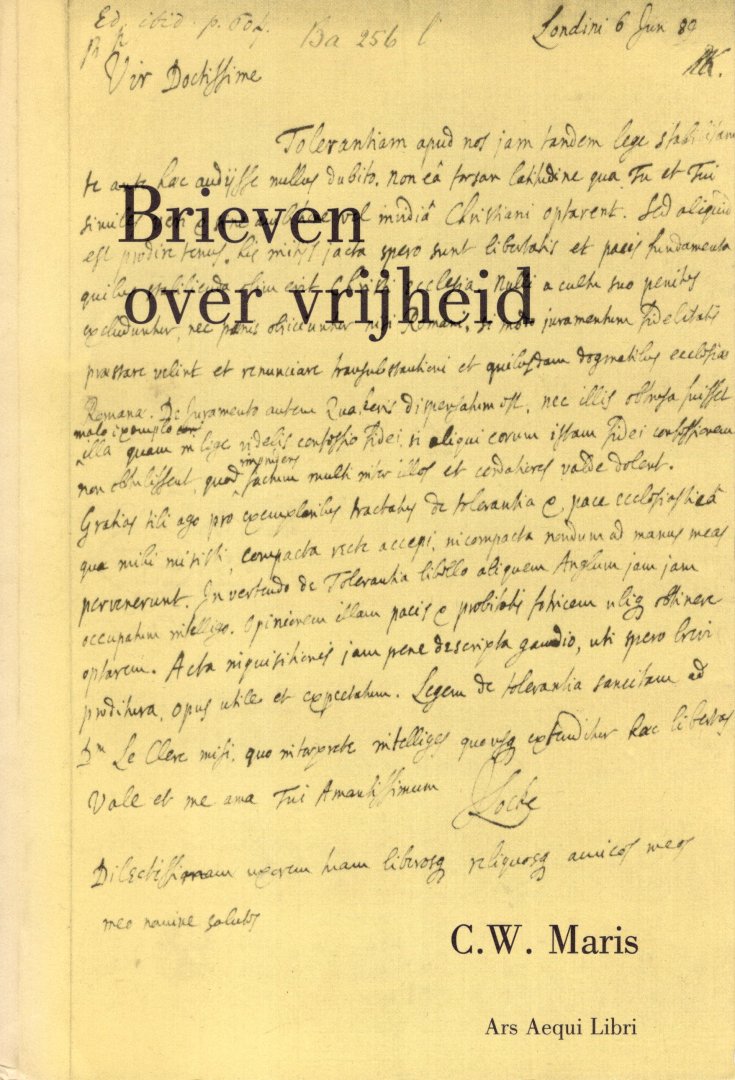 Ed. ibid. p. 604.
Ba 256 l
Londini 6 Jun 89
Vir Doctissime
Tolerantiam apud nos jam tandem lege stabilitam
te ante hac audijsse nullus dubito. Non eâ forsan latitudine qua Tu et Tui
Brieven
similes Christiani optarent. Sed aliquid
est prodire tenus. His initijs jacta spero sunt libertatis et pacis fundamenta
over vrijheid
quibus stabilienda olim erit Christi ecclesia. Nulli a cultu suo penitus
excluduntur, nec nisi Romani, si modo juramentum fidelitatis
præstare velint et renunciare transubstantioni et quibusdam dogmatibus ecclesiæ
Romanæ. De juramento autem Quakeris dispensatum est, nec illis obtrusa fuisset
malo exemplo
illa quam in lege videbis confessio fidei, si aliqui eorum istam fidei confessionem
imprimis
non obtulissent, quod factum multi inter illos et cordatiores valde dolent.
Gratias tibi ago pro exemplaribus tractatus de tolerantia & pace ecclesiasticâ
quæ mihi misisti, compacta recte accepi, incompacta nondum ad manus meas
pervenerunt. In vertendo de Tolerantia libello aliquem Anglum jam jam
occupatum intelligo. Opinionem illam pacis & probitatis fotricem ubiq obtinere
optarem. Acta inquisitionis jam pene descripta gaudio, uti spero brevi
proditura, opus utile et expectatum. Legem de tolerantia sancitam ad
Dm Le Clerc misi, quo interprete intelliges quousq extenditur hæc libertas
Vale et me ama Tui Amantissimum
JLocke
Dilectissimam uxorem tuam liberosq reliquosq amicos meos
meo nomine salutes
C.W. Maris
Ars Aequi Libri